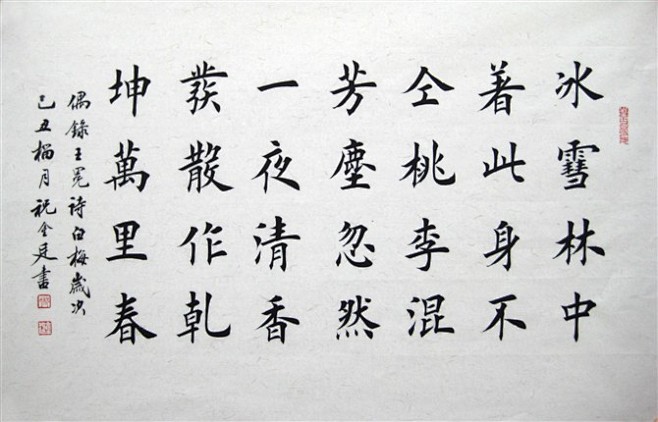 冰雪林中
著此身不
仝桃李混
芳塵忽然
一夜清香
發散作乾
坤萬里春
偶錄王冕詩白梅歲次
己丑榴月祝金書